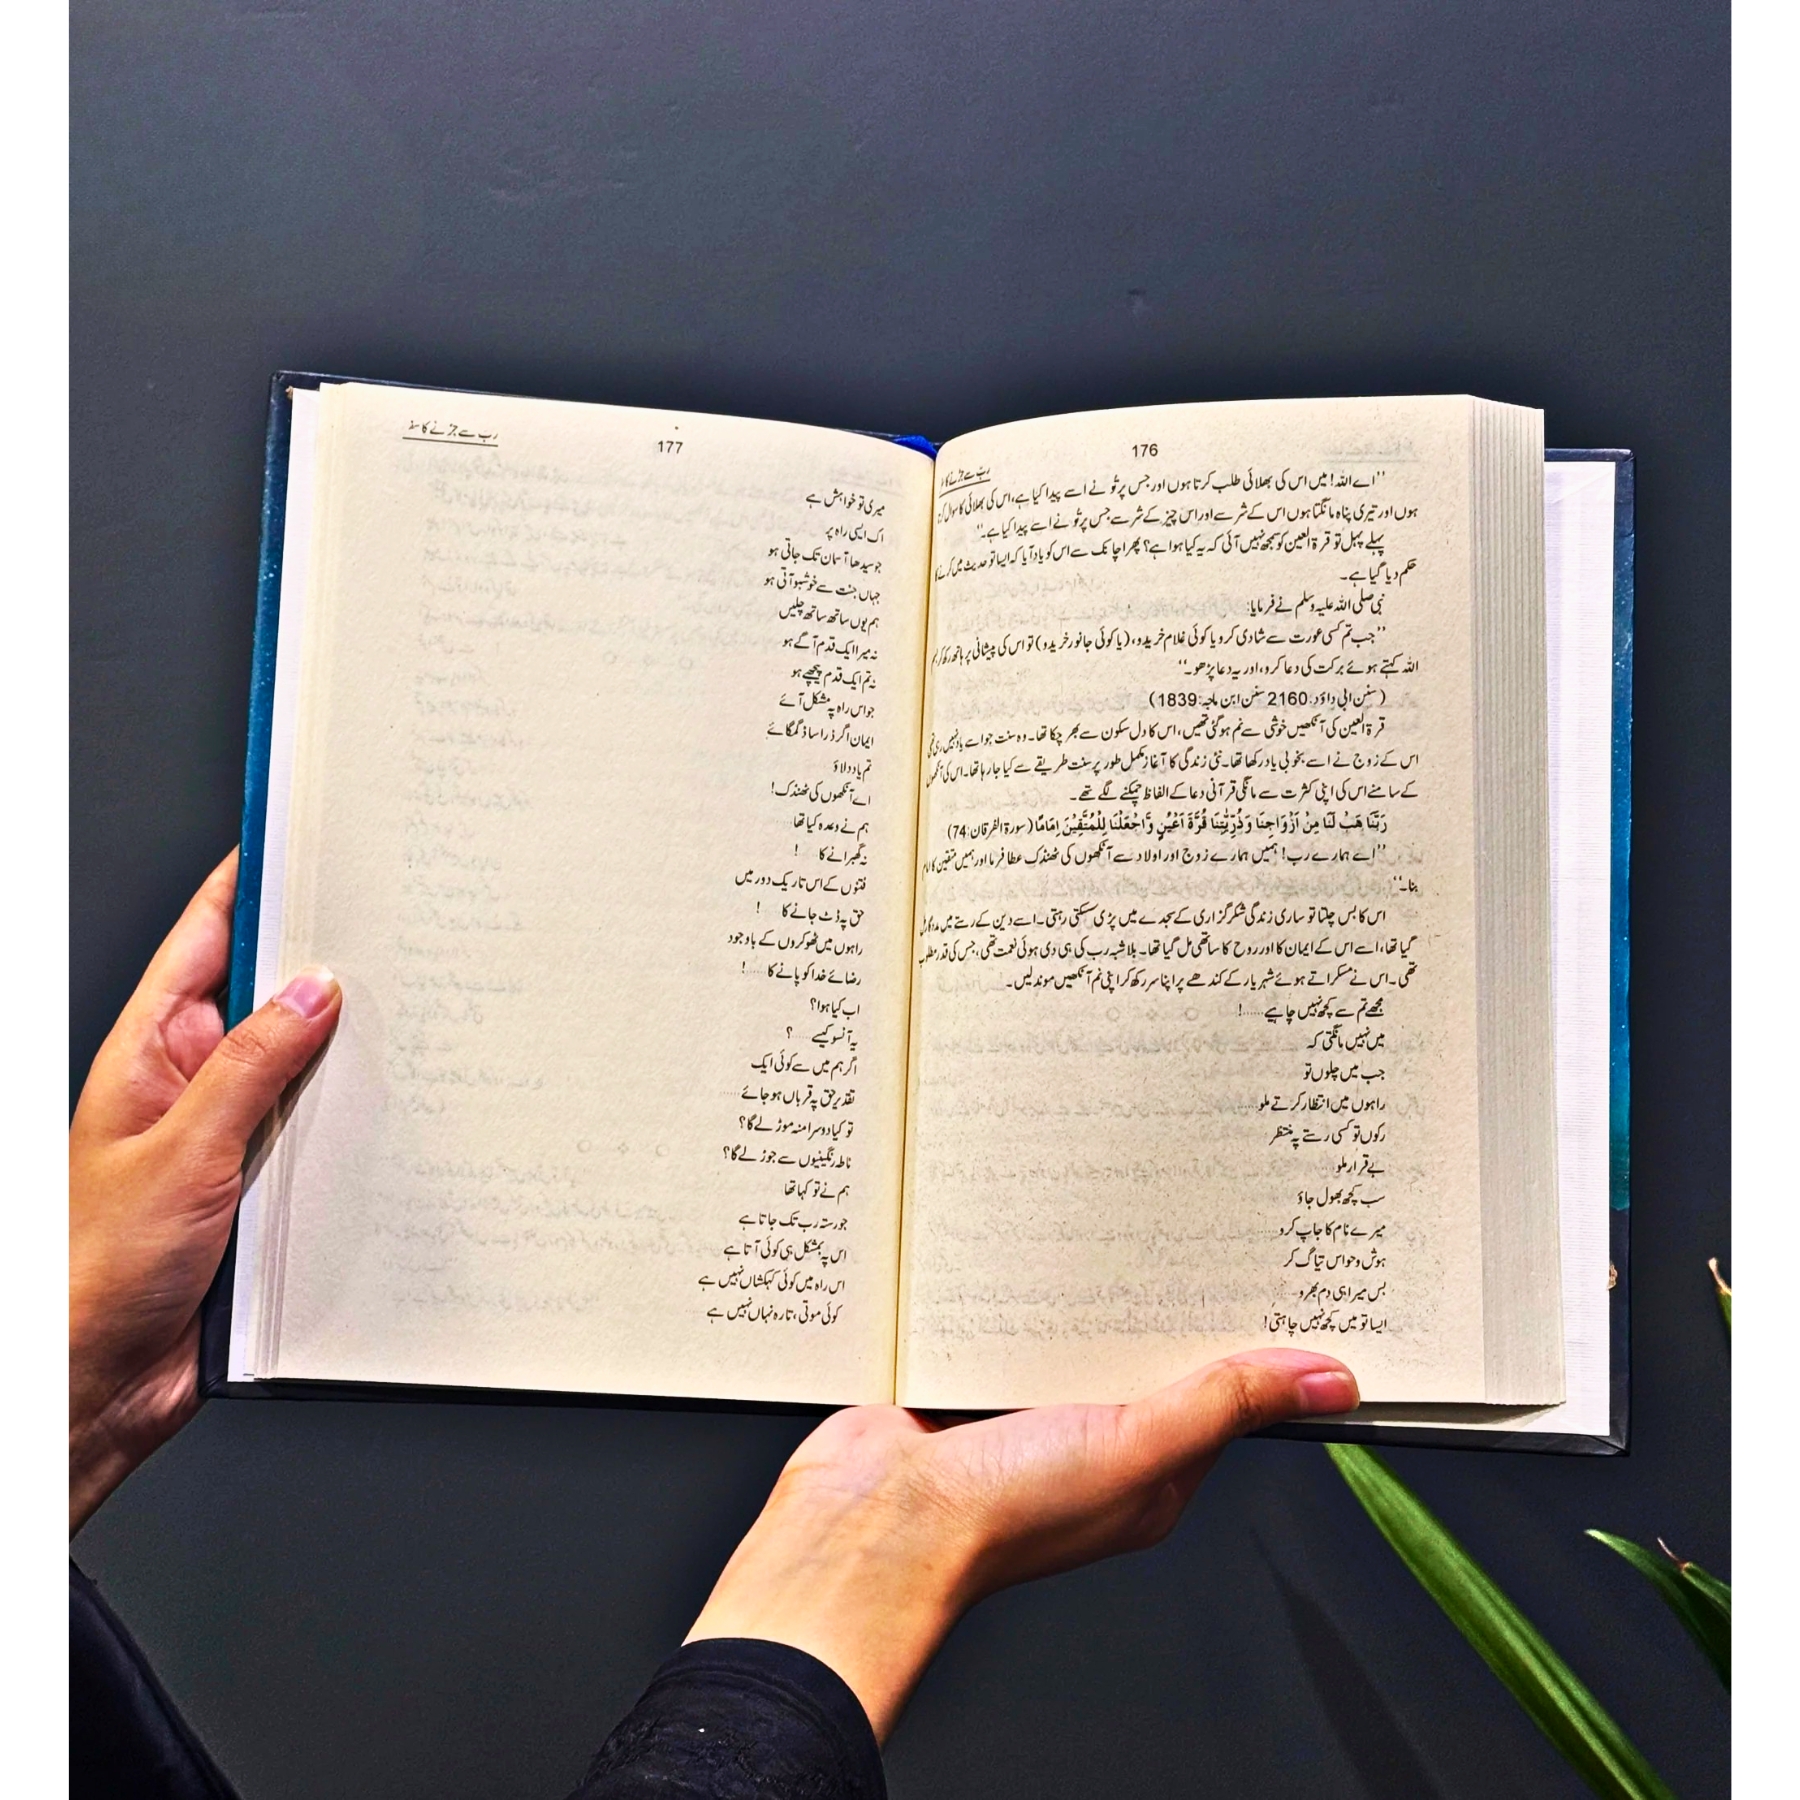 176
رب سے جڑنے کا
’’اے اللہ! میں اس کی بھلائی طلب کرتا ہوں اور جس پر تُو نے اسے پیدا کیا ہے، اس کی بھلائی کا سوال کرتا
ہوں اور تیری پناہ مانگتا ہوں اس کے شر سے اور اس چیز کے شر سے جس پر تُو نے اسے پیدا کیا ہے۔‘‘
پہلے پہل تو قرۃ العین کو سمجھ نہیں آئی کہ یہ کیا ہوا ہے؟ پھر اچانک سے اس کو یاد آیا کہ ایسا تو حدیث میں کرنے کا
حکم دیا گیا ہے۔
نبی صلی اللہ علیہ وسلم نے فرمایا:
’’جب تم کسی عورت سے شادی کرو یا کوئی غلام خریدو، (یا کوئی جانور خریدو) تو اس کی پیشانی پر ہاتھ رکھ کر بسم
اللہ کہتے ہوئے برکت کی دعا کرو، اور یہ دعا پڑھو۔‘‘
(سنن ابی داؤد: 2160 سنن ابن ماجہ: 1839)
قرۃ العین کی آنکھیں خوشی سے نم ہو گئی تھیں، اس کا دل سکون سے بھر چکا تھا۔ وہ سنت جو اسے یاد نہیں رہی تھی
اس کے زوج نے اسے بخوبی یاد رکھا تھا۔ نئی زندگی کا آغاز مکمل طور پر سنت طریقے سے کیا جا رہا تھا۔ اس کی آنکھوں
کے سامنے اس کی اپنی کثرت سے مانگی قرآنی دعا کے الفاظ چمکنے لگے تھے۔
رَبَّنَا هَبْ لَنَا مِنْ اَزْوَاجِنَا وَذُرِّيّٰتِنَا قُرَّةَ اَعْيُنٍ وَّاجْعَلْنَا لِلْمُتَّقِيْنَ اِمَامًا (سورۃ الفرقان: 74)
’’اے ہمارے رب! ہمیں ہمارے زوج اور اولاد سے آنکھوں کی ٹھنڈک عطا فرما اور ہمیں متقین کا امام
بنا۔‘‘
اس کا بس چلتا تو ساری زندگی شکر گزاری کے سجدے میں پڑی سسکتی رہتی۔ اسے دین کے رستے میں مددگار مل
گیا تھا، اسے اس کے ایمان کا اور روح کا ساتھی مل گیا تھا۔ بلاشبہ رب کی ہی دی ہوئی نعمت تھی، جس کی قدر مطلوب
تھی۔ اس نے مسکراتے ہوئے شہریار کے کندھے پر اپنا سر رکھ کر اپنی نم آنکھیں موند لیں۔
مجھے تم سے کچھ نہیں چاہیے......!
میں نہیں مانگتی کہ
جب میں چلوں تو
راہوں میں انتظار کرتے ملو......
رکوں تو کسی رستے پہ منتظر
بے قرار ملو......
سب کچھ بھول جاؤ
میرے نام کا جاپ کرو......
ہوش و حواس تیاگ کر
بس میرا ہی دم بھرو......
ایسا تو میں کچھ نہیں چاہتی!
177
رب سے جڑنے کا سفر
میری تو خواہش ہے
اک ایسی راہ پر
جو سیدھا آسمان تک جاتی ہو
جہاں جنت سے خوشبو آتی ہو
ہم یوں ساتھ ساتھ چلیں
نہ میرا ایک قدم آگے ہو
نہ تم ایک قدم پیچھے ہو
جو اس راہ پہ مشکل آئے
ایمان اگر ذرا سا ڈگمگائے
تم یاد دلاؤ
اے آنکھوں کی ٹھنڈک!
ہم نے وعدہ کیا تھا......
نہ گھبرانے کا......!
فتنوں کے اس تاریک دور میں
حق پہ ڈٹ جانے کا......!
راہوں میں ٹھوکروں کے باوجود
رضائے خدا کو پانے کا......!
اب کیا ہوا؟
یہ آنسو کیسے......؟
اگر ہم میں سے کوئی ایک
تقدیرِ حق پہ قرباں ہو جائے......
تو کیا دوسرا منہ موڑ لے گا؟
ناطہ رنگینیوں سے جوڑ لے گا؟
ہم نے تو کہا تھا
جو رستہ رب تک جاتا ہے
اس پہ بمشکل ہی کوئی آتا ہے
اس راہ میں کوئی کہکشاں نہیں ہے
کوئی موتی، تارہ نہاں نہیں ہے......